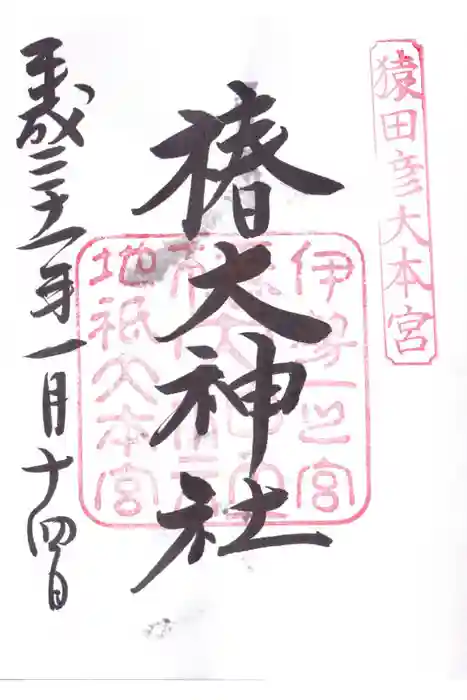 猿田彦大本宮
伊勢一之宮
地祇大本宮
椿大神社
平成三十一年一月十四日